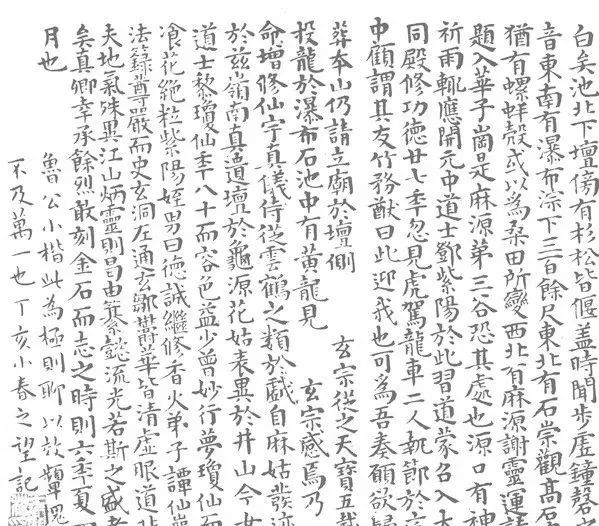 白矣池北下壇傍有杉松皆偃盖時聞步虛鐘磬
音東南有瀑布淙下三百餘尺東北有石崇觀高石
猶有螺蚌殻或以為桑田所變西北有麻源謝靈運
題入華子崗是麻源第三谷恐其處也源口有神
祈雨輒應開元中道士鄧紫陽於此習道蒙召入大
同殿修功德廿七年忽見虎駕龍車二人執節於
中顧謂其友竹務猷曰此迎我也可為吾奏願欲歸
葬本山仍請立廟於壇側　玄宗從之天寶五載
投龍於瀑布石池中有黃龍見　玄宗感焉乃
命增修仙宇真儀侍從雲鶴之類於戲自麻姑發迹
於兹嶺南真遺壇於龜源花姑表異於井山今
道士黎瓊仙年八十而容色益少曾妙行夢瓊仙而
飡花絶粒紫陽姪男曰德誠繼修香火弟子譚仙巖
法籙尊嚴而史玄洞左通玄鄒鬱華皆清虛服道非
夫地氣殊異江山炳靈則曷由纂懿流光若斯之盛者
矣真卿幸承餘烈敢刻金石而志之時則六年夏
月也
魯公小楷此為極則聊以效顰愧
不及萬一也丁亥小春之望記